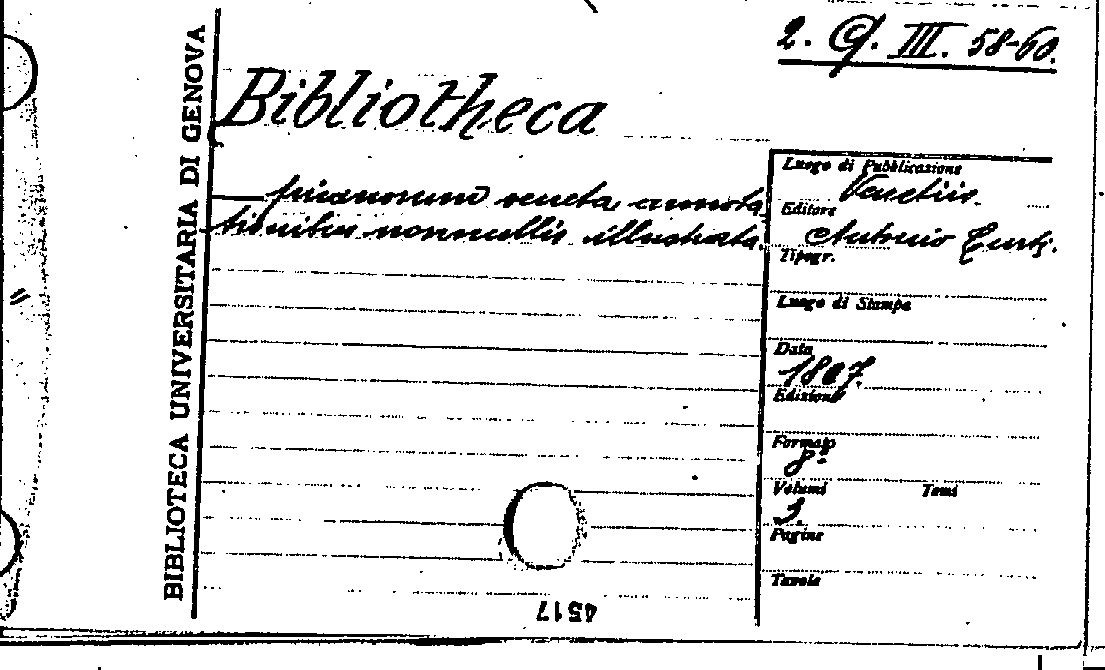 2. Q. III. 58-60.
BIBLIOTECA UNIVERSITARIA DI GENOVA
Bibliotheca
veneta annota
tionibus nonnullis illustrata.
Luogo di Pubblicazione
Venetiis.
Editore
Antonio Curti.
Tipogr.
Luogo di Stampa
Data
1807.
Edizione
Formato
8º
Volumi Tomi
3.
Pagine
Tavole
4517